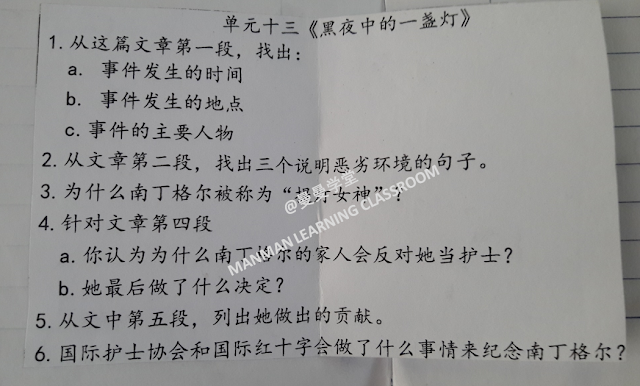 单元十三《黑夜中的一盏灯》
1. 从这篇文章第一段，找出：
a. 事件发生的时间
b. 事件发生的地点
c. 事件的主要人物
2. 从文章第二段，找出三个说明恶劣环境的句子。
3. 为什么南丁格尔被称为“提灯女神”？
4. 针对文章第四段
a. 你认为为什么南丁格尔的家人会反对她当护士？
b. 她最后做了什么决定？
5. 从文中第五段，列出她做出的贡献。
6. 国际护士协会和国际红十字会做了什么事情来纪念南丁格尔？
@曼曼学堂
MANMAN LEARNING CLASSROOM